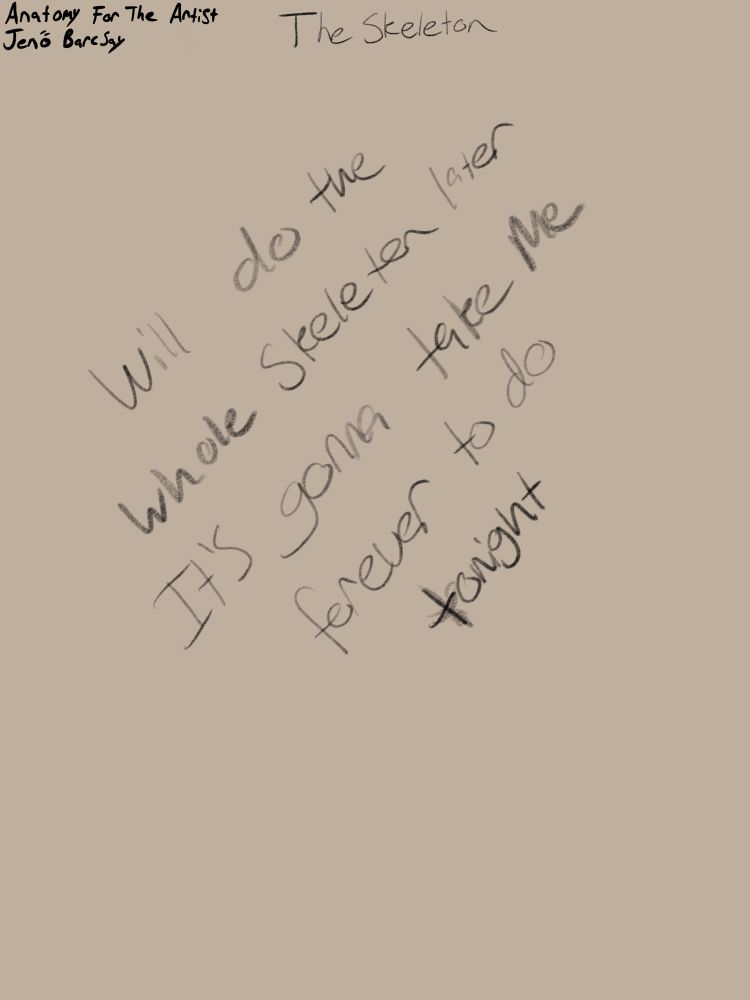 Anatomy For The Artist
Jenő Barcsay
The Skeleton
Will do the
whole skeleton later
It's gonna take me
forever to do
tonight